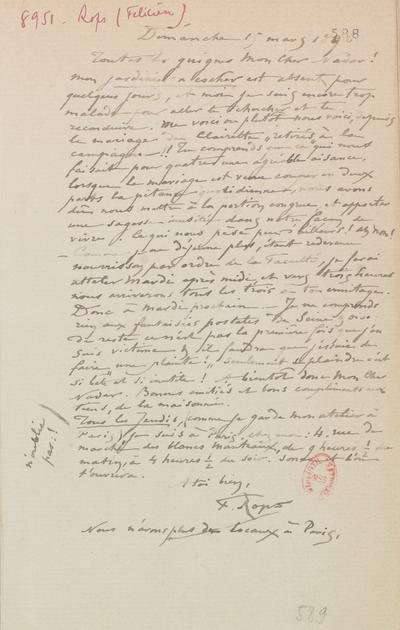 8951. Rops (Félicien)
588
Dimanche 15 mars
Toutes les guignes mon Cher Nadar!
Mon jardinier-cocher est absent pour
quelques jours, et moi je suis encore trop
malade pour aller te chercher et te
reconduire. Me voici ou plutôt nous voici, depuis
le mariage de Clairette "retirés à la
campagne"!! Tu comprends que ce qui nous
faisait pour quatre une agréable aisance,
lorsque le mariage est venu couper en deux
parts la pitance quotidienne, nous avons
dû nous mettre à la portion congrue et apporter
une sagesse dans notre façon de
vivre. Ce qui nous pèse peu d'ailleurs! Ah non!
– Comme je ne déjeune plus, étant redevenu
nourrisson par ordre de la Faculté, je ferai
atteler Mardi après midi et vers trois heures
nous arriverons tous les trois à ton ermitage.
Donc à Mardi prochain – Je ne comprends
rien aux fantaisies postales de Seine & Oise
du reste ce n'est pas la première fois que j'en
suis victime. Il faudra que j'essaie de
faire "une plainte!" seulement se plaindre c'est
si bête et si inutile! A bientôt donc Mon Cher
Nadar. Bonnes amitiés et bons compliments aux
tiens, de la maisonnée.
Tous les Jeudis, comme je garde mon atelier à
Paris, je suis à Paris, chez moi: 4, rue du
marché des blancs manteaux, de heures ½ du
matin, à 4 heures ½ du soir. Sonne et l'on
t'ouvrira.
n'oublie
pas!
A toi bien,
F. Rops
Nous n'avons plus de locaux à Paris.
589